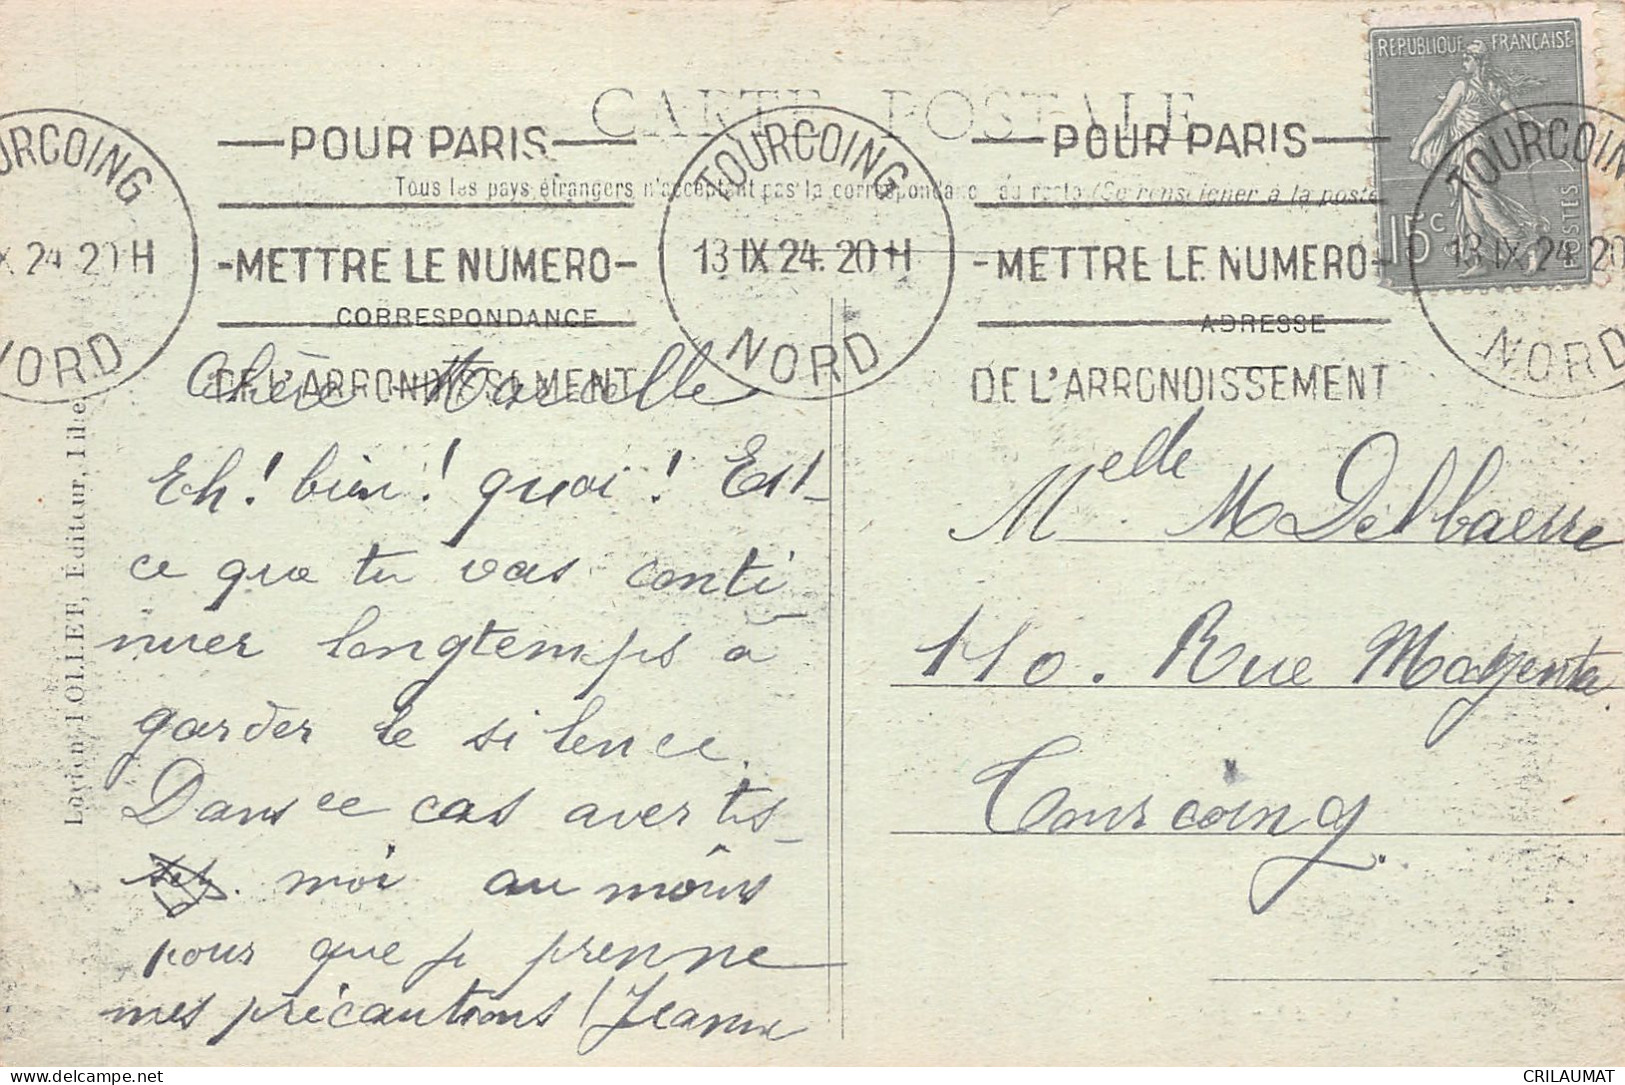 CARTE POSTALE
Tous les pays étrangers n'acceptent pas la correspondance au recto (Se renseigner à la poste
REPUBLIQUE FRANÇAISE
15c
POSTES
TOURCOING
13 IX 24. 20 H
NORD
POUR PARIS
METTRE LE NUMERO
DE L'ARRONDISSEMENT
TOURCOING
13 IX 24. 20 H
NORD
POUR PARIS
METTRE LE NUMERO
DE L'ARRONDISSEMENT
TOURCOING
13 IX 24. 20
NORD
CORRESPONDANCE
ADRESSE
Chère Marcelle
Eh! bien! quoi! Est-
ce que tu vas conti-
nuer longtemps à
garder le silence.
Dans ce cas avertis-
moi au moins
pour que je prenne
mes précautions! Jeanne
Melle M Delbaerre
110. Rue Magenta
Tourcoing.
Lucien JOLIET, Editeur, Lille
delcampe.net
CRILAUMAT